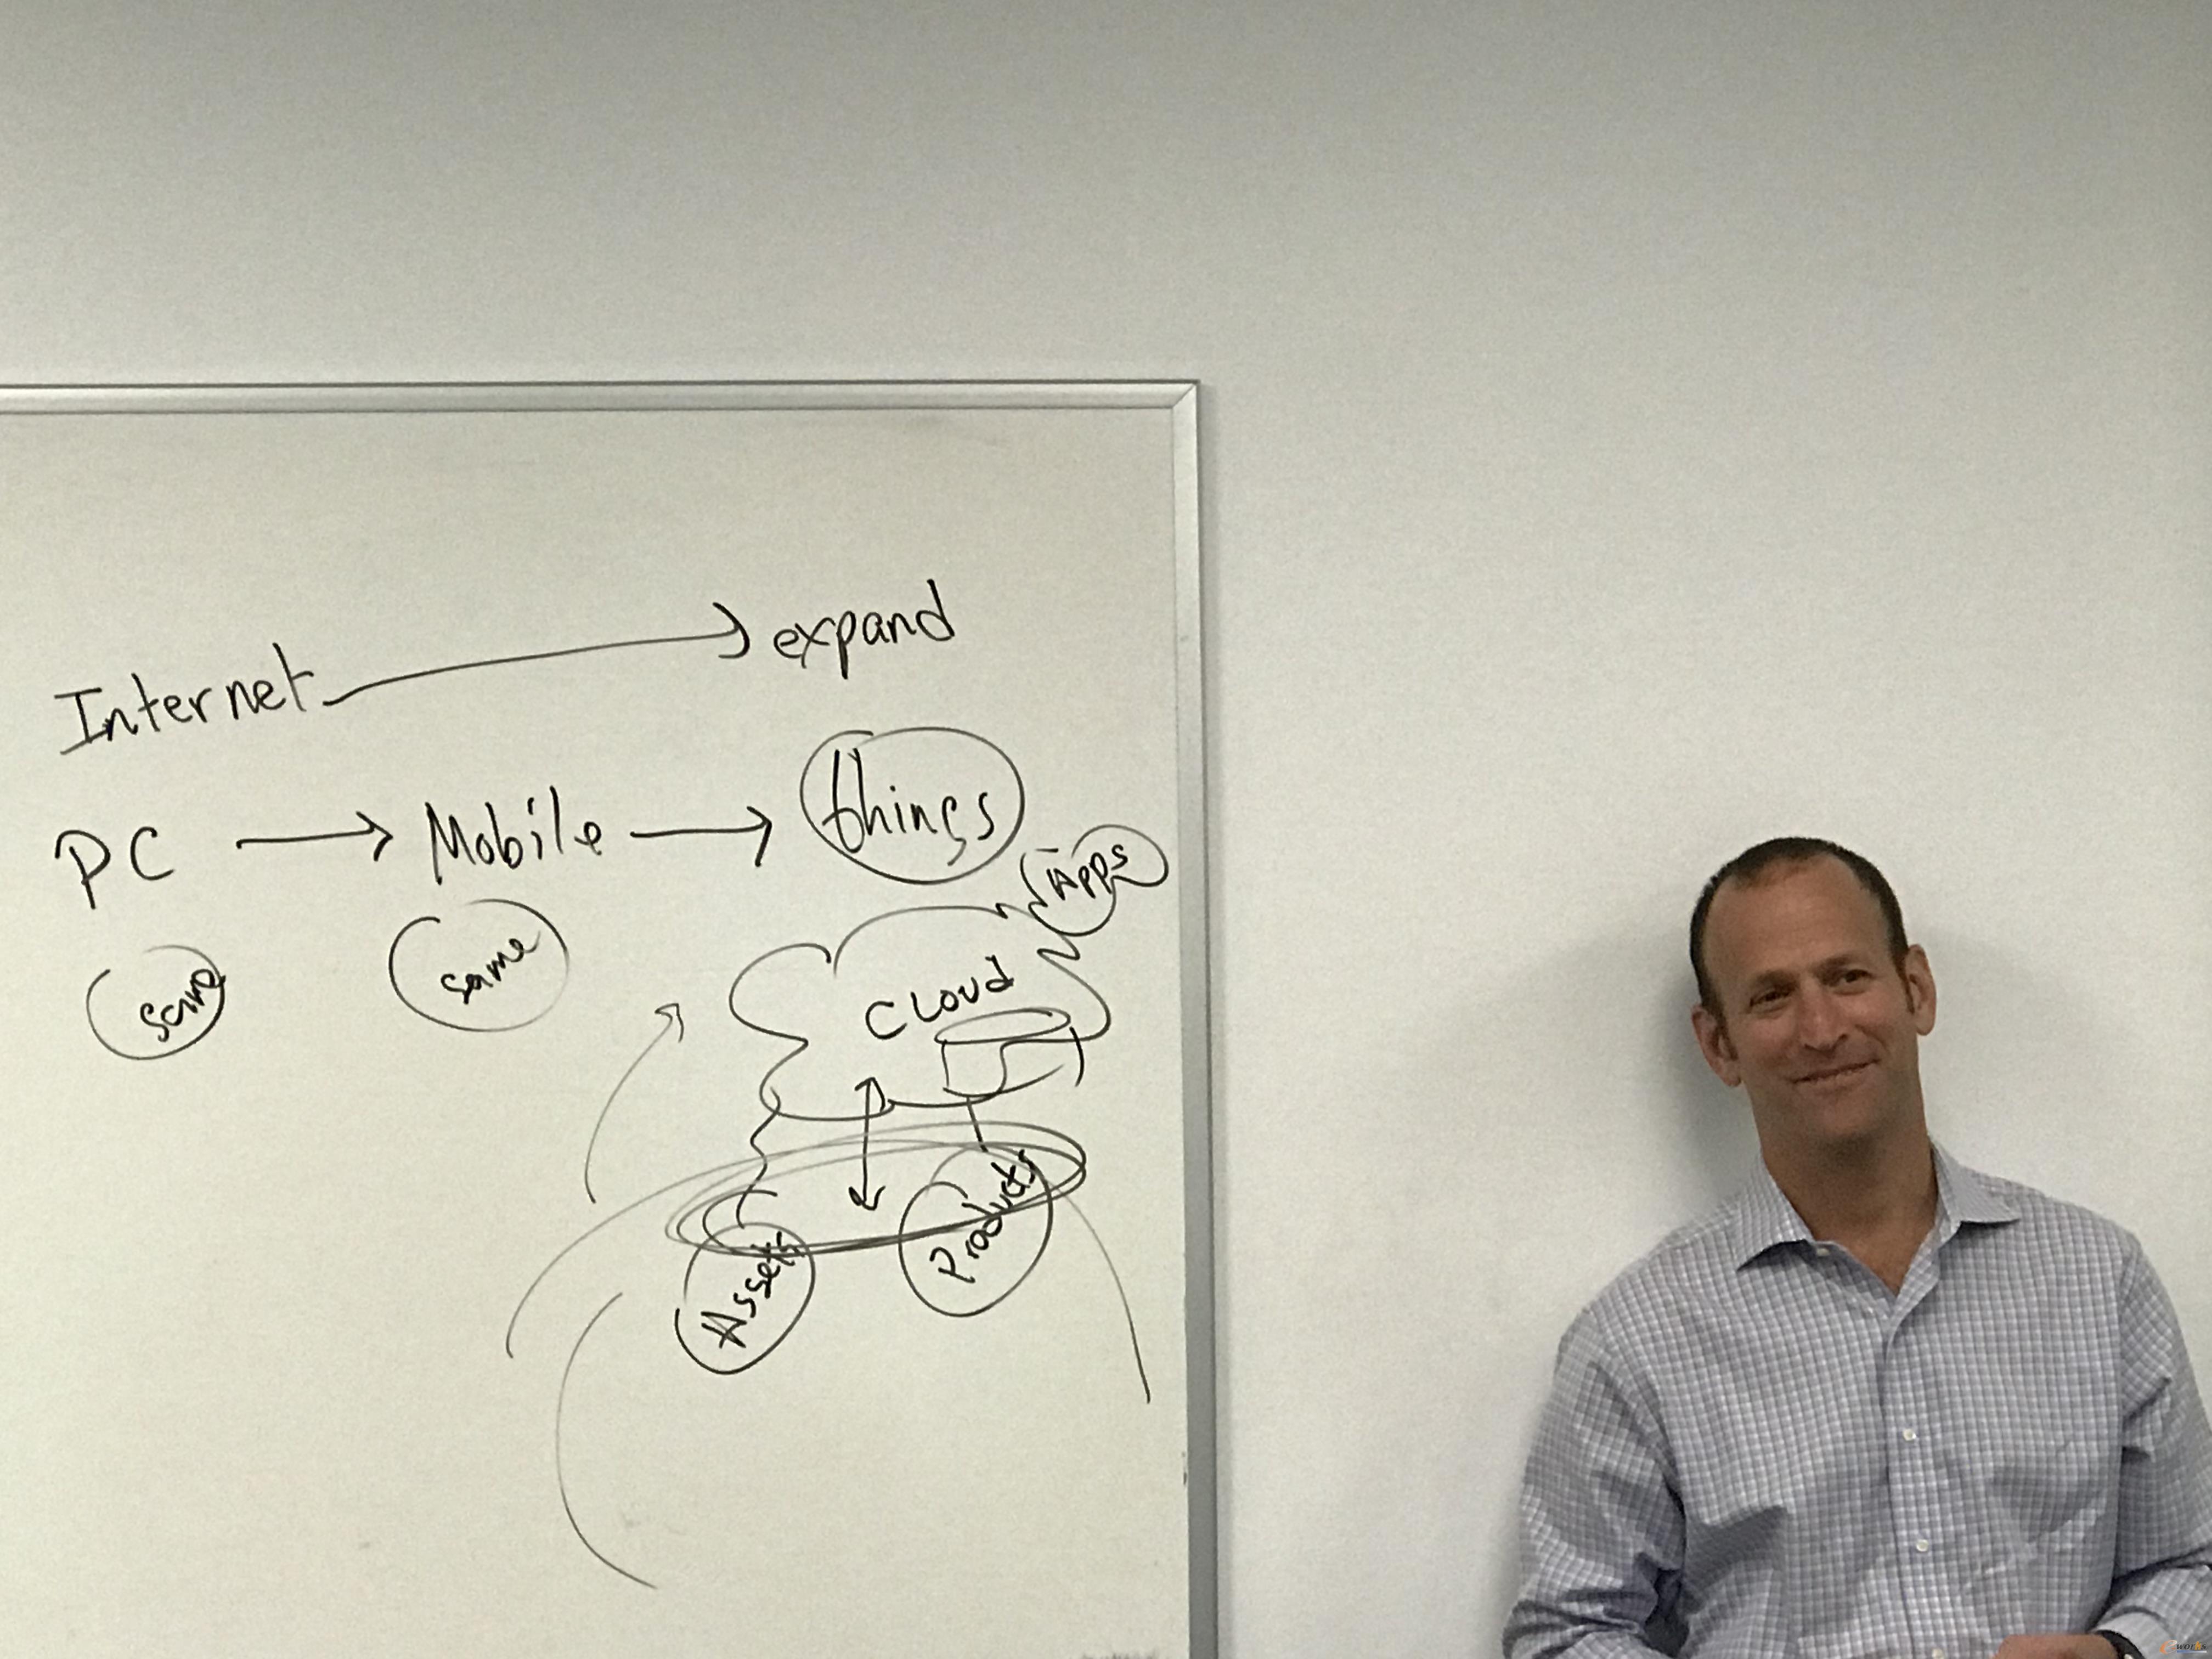 Internet expand
PC Mobile things
Apps
same same
CLoud
Assets Products
e works